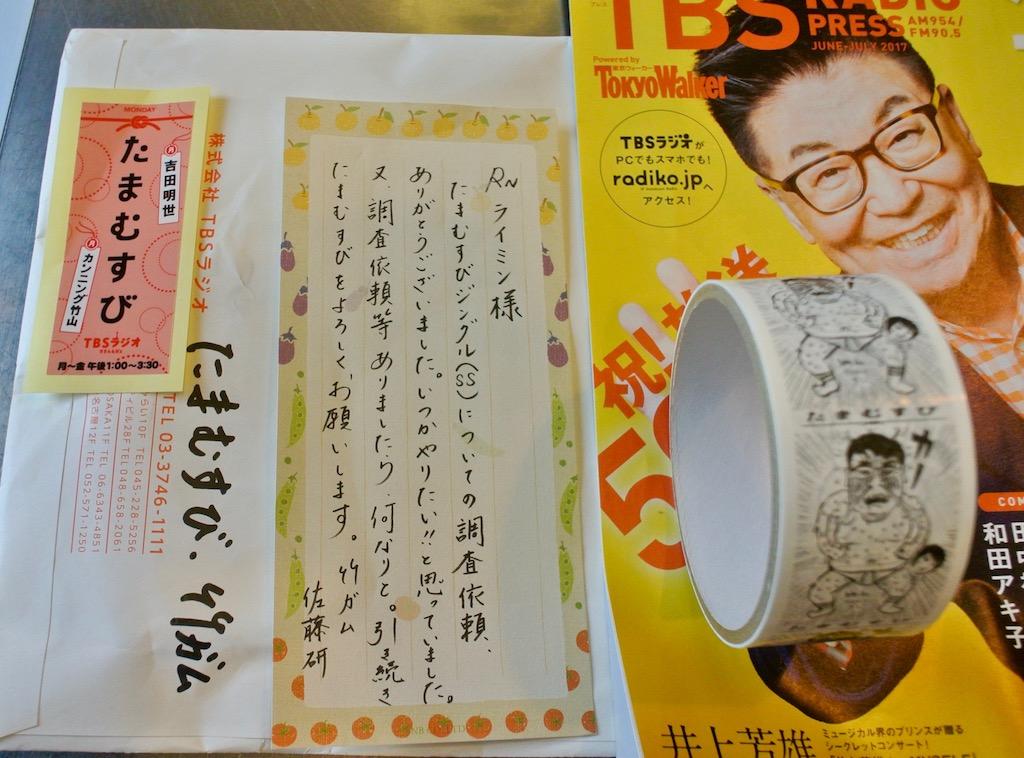 MONDAY
たまむすび
吉田明世
カンニング竹山
TBSラジオ
月〜金 午後1:00〜3:30
株式会社 TBSラジオ
TEL 03-3746-1111
10F TEL 045-228-5256
28F TEL 048-658-2061
SAKA11F TEL 06-6343-4851
名古屋12F TEL 052-571-1250
たまむすび、竹ガム
RNライミン様
たまむすびジングル(SS)についての調査依頼、
ありがとうございました。いつかやりたい!!と思っていました。
又、調査依頼等ありましたら、何なりと。引き続き
たまむすびをよろしくお願いします。竹ガム
佐藤研
TBS RADIO
PRESS AM954/
FM90.5
JUNE-JULY 2017
Powered by
東京ウォーカー
TokyoWalker
TBSラジオが
PCでもスマホでも!
radiko.jpへ
アクセス!
祝!
たまむすび
カー
COM
和田アキ子
井上芳雄
ミュージカル界のプリンスが贈る
シークレットコンサート!